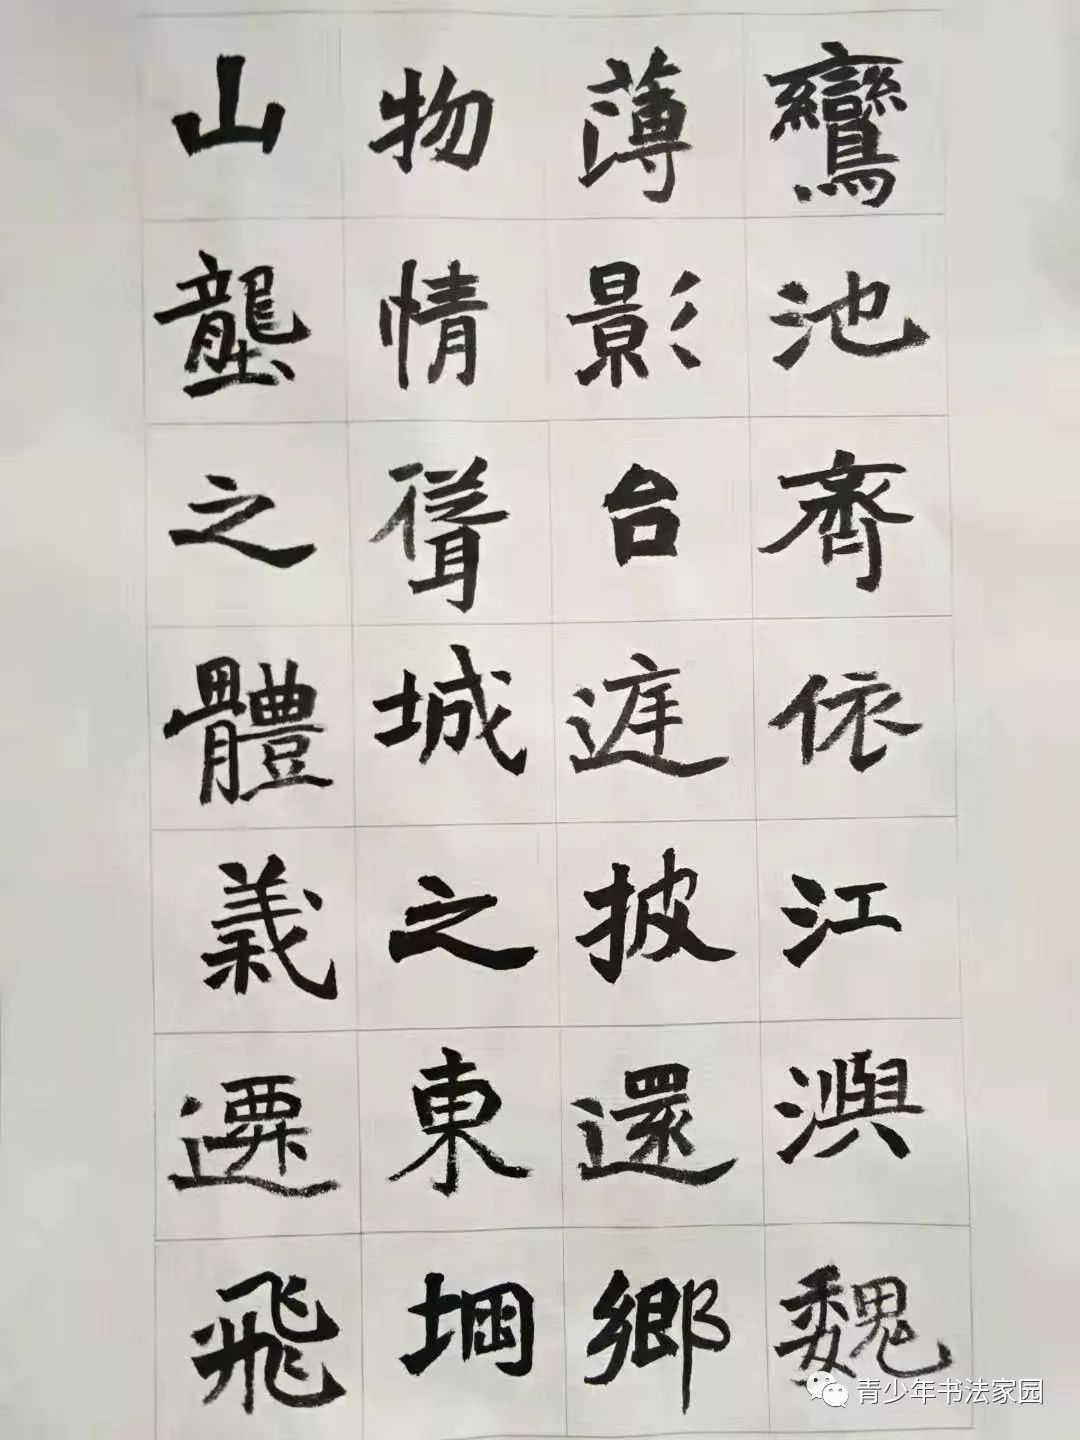 鸞池齊依江澳魏
薄影台遮披還鄉
物情聳城之東堈
山壟之體義遷飛
青少年书法家园